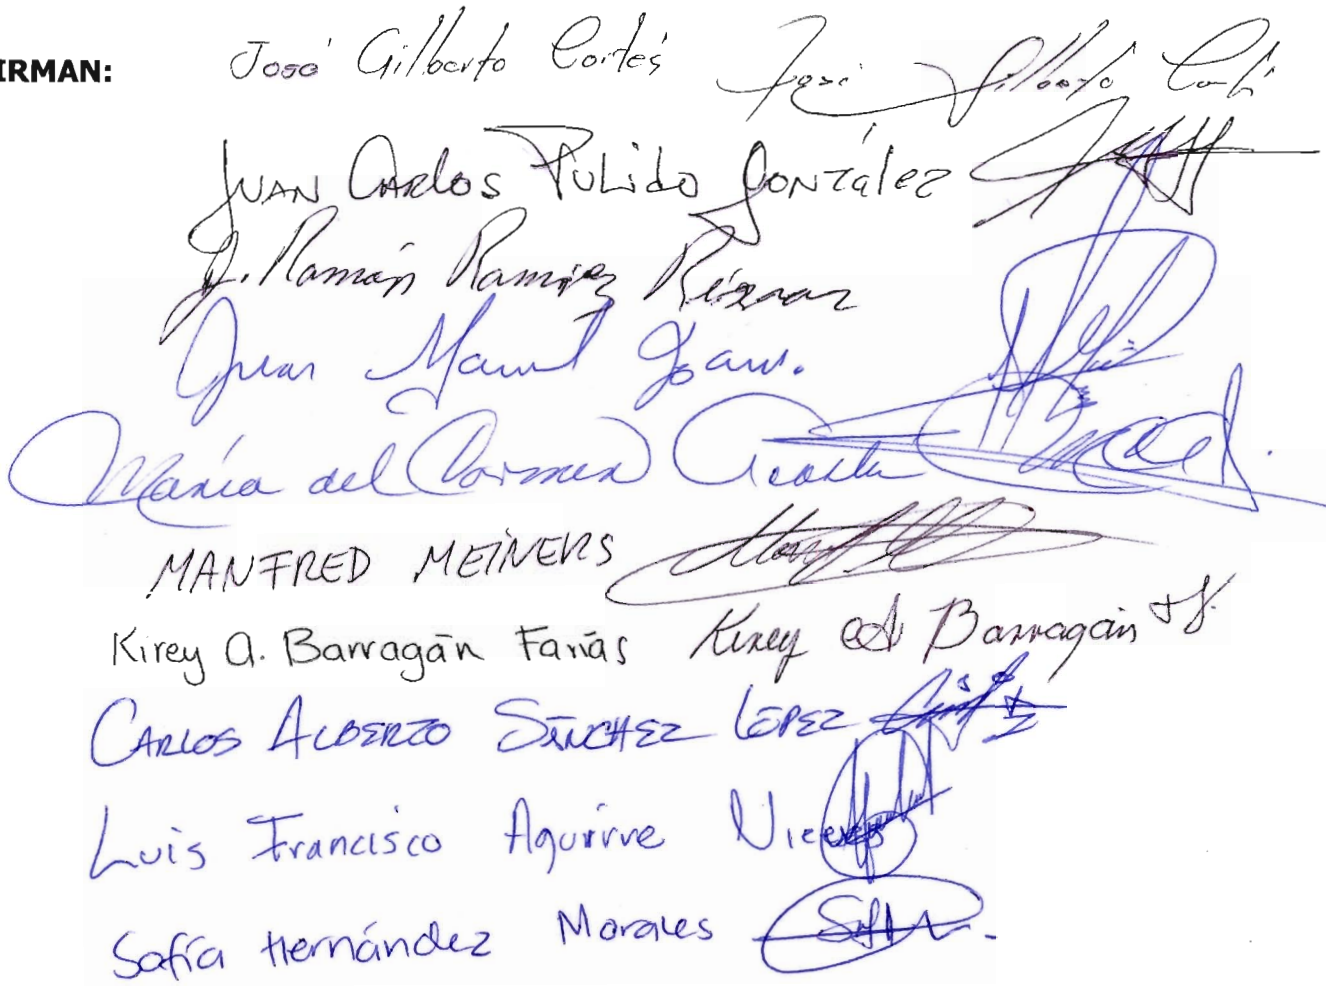 IRMAN: José Gilberto Cortés José Gilberto Cortés
JUAN CARLOS PULIDO GONZÁLEZ
J. Román Ramírez
Juan Manuel
María del Carmen Acosta
MANFRED MEINERS
Kirey A. Barragán Farías Kirey A Barragán
CARLOS ALBERTO SÁNCHEZ LÓPEZ
Luis Francisco Aguirre
Sofía Hernández Morales